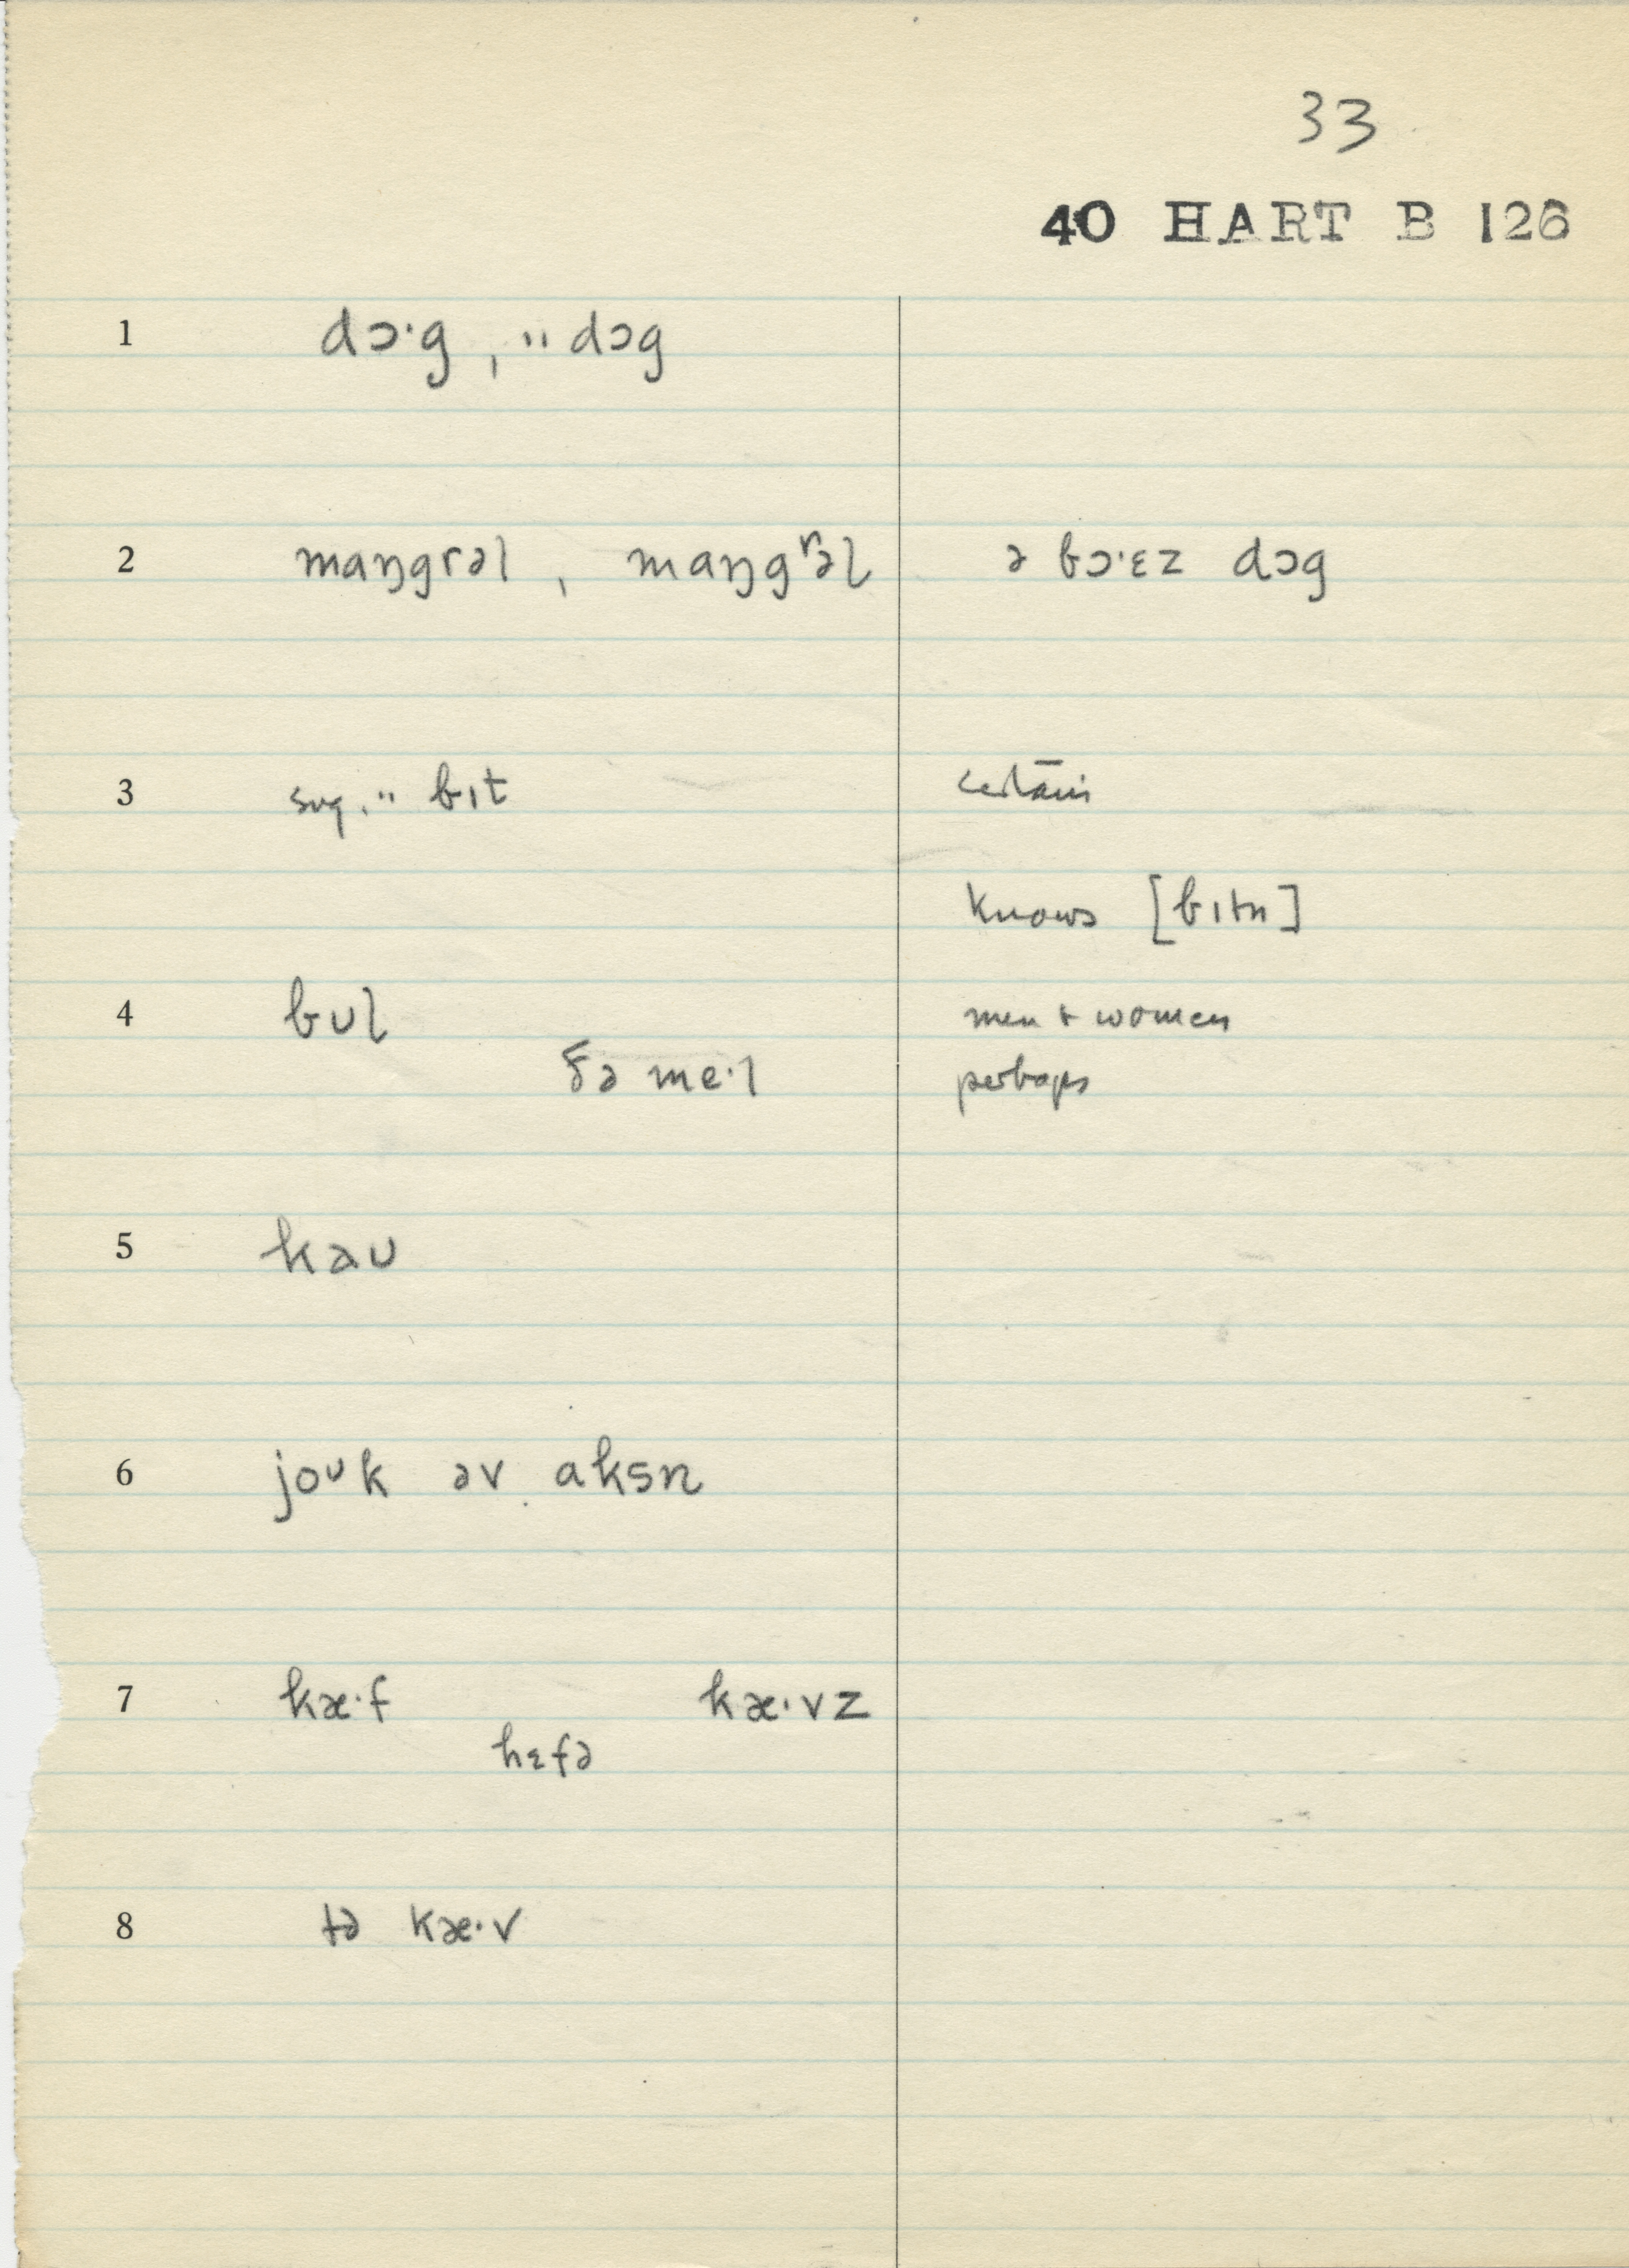 33
40 HART B 126
1 dɔ·g, " dɔg
2 maŋgrəl, maŋgʳəl ə bɔ·ɛz dɔg
3 sug. " bɪt certain
knows [bɪtn]
4 bʊl men + women
ðə me·l perhaps
5 kaʊ
6 joᴜk əv aksn
7 kæ·f kæ·vz
hɛfə
8 tə kæ·v